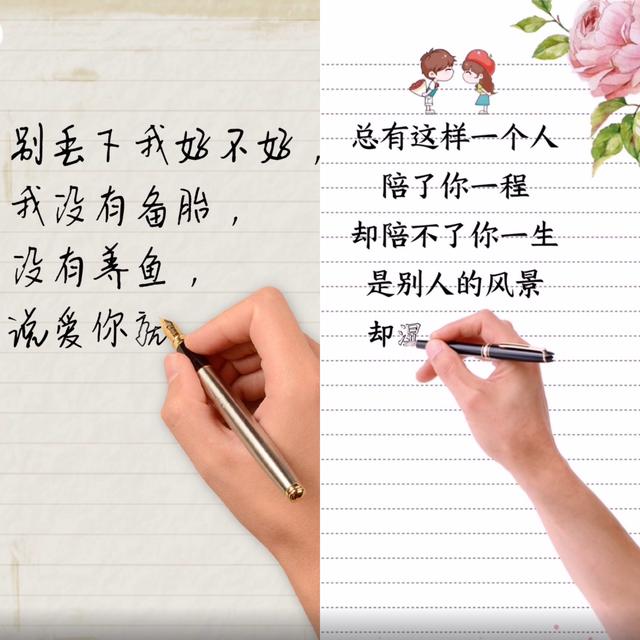 别丢下我好不好，
我没有备胎，
没有养鱼，
说爱你就
总有这样一个人
陪了你一程
却陪不了你一生
是别人的风景
却湿